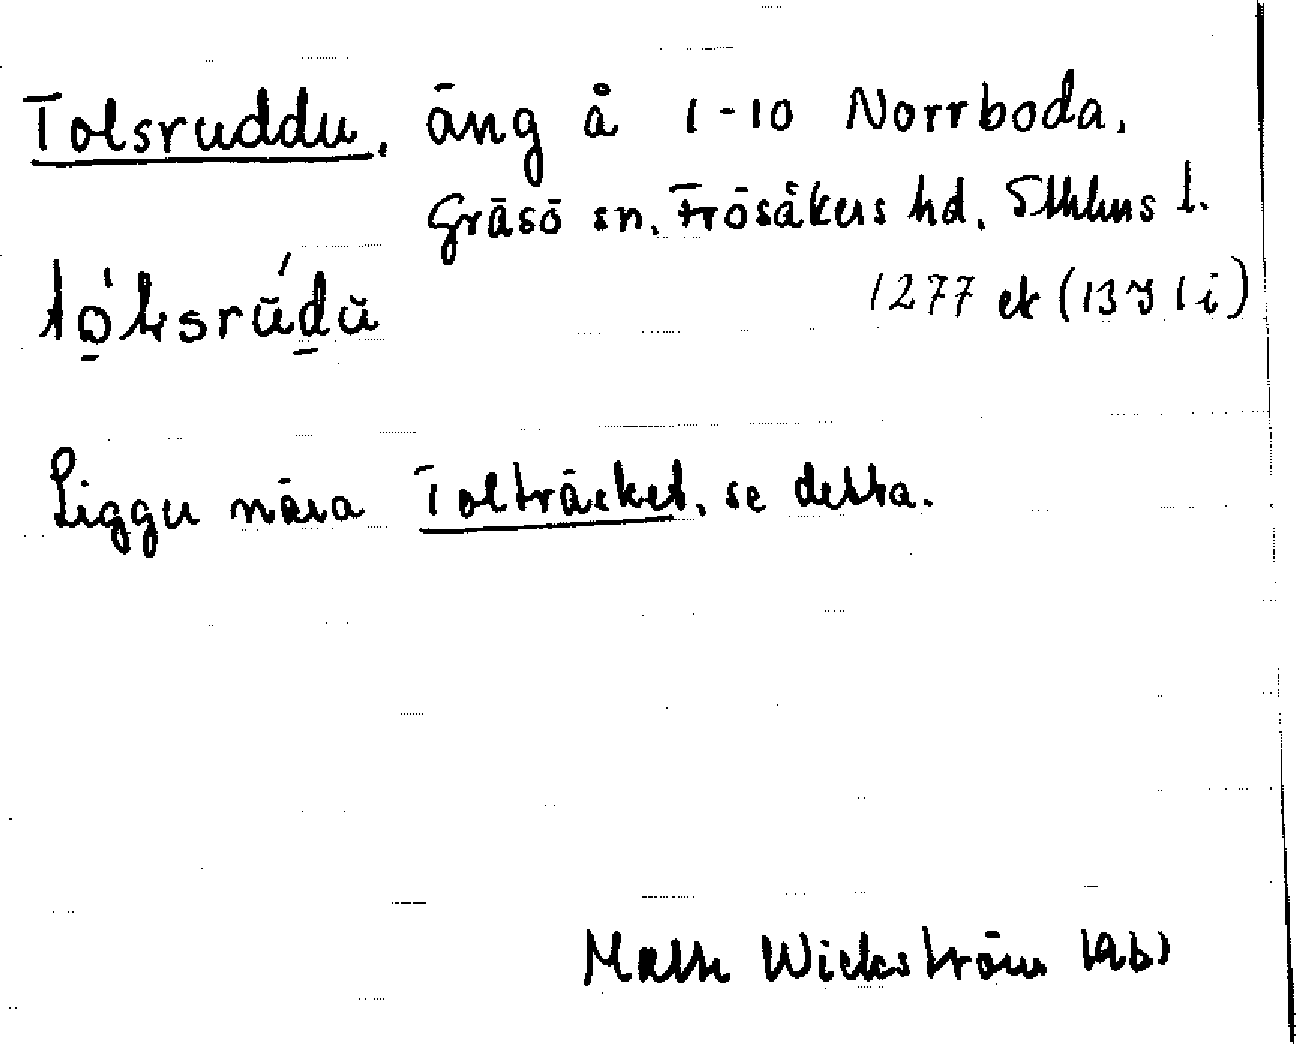 Tolsruddu, äng å 1-10 Norrboda,
Gräsö sn. Frösåkers hd. Sthlms l.
1277 ek (13 I i)
Ligger nära Tolträsket, se detta.
Wickström 1961